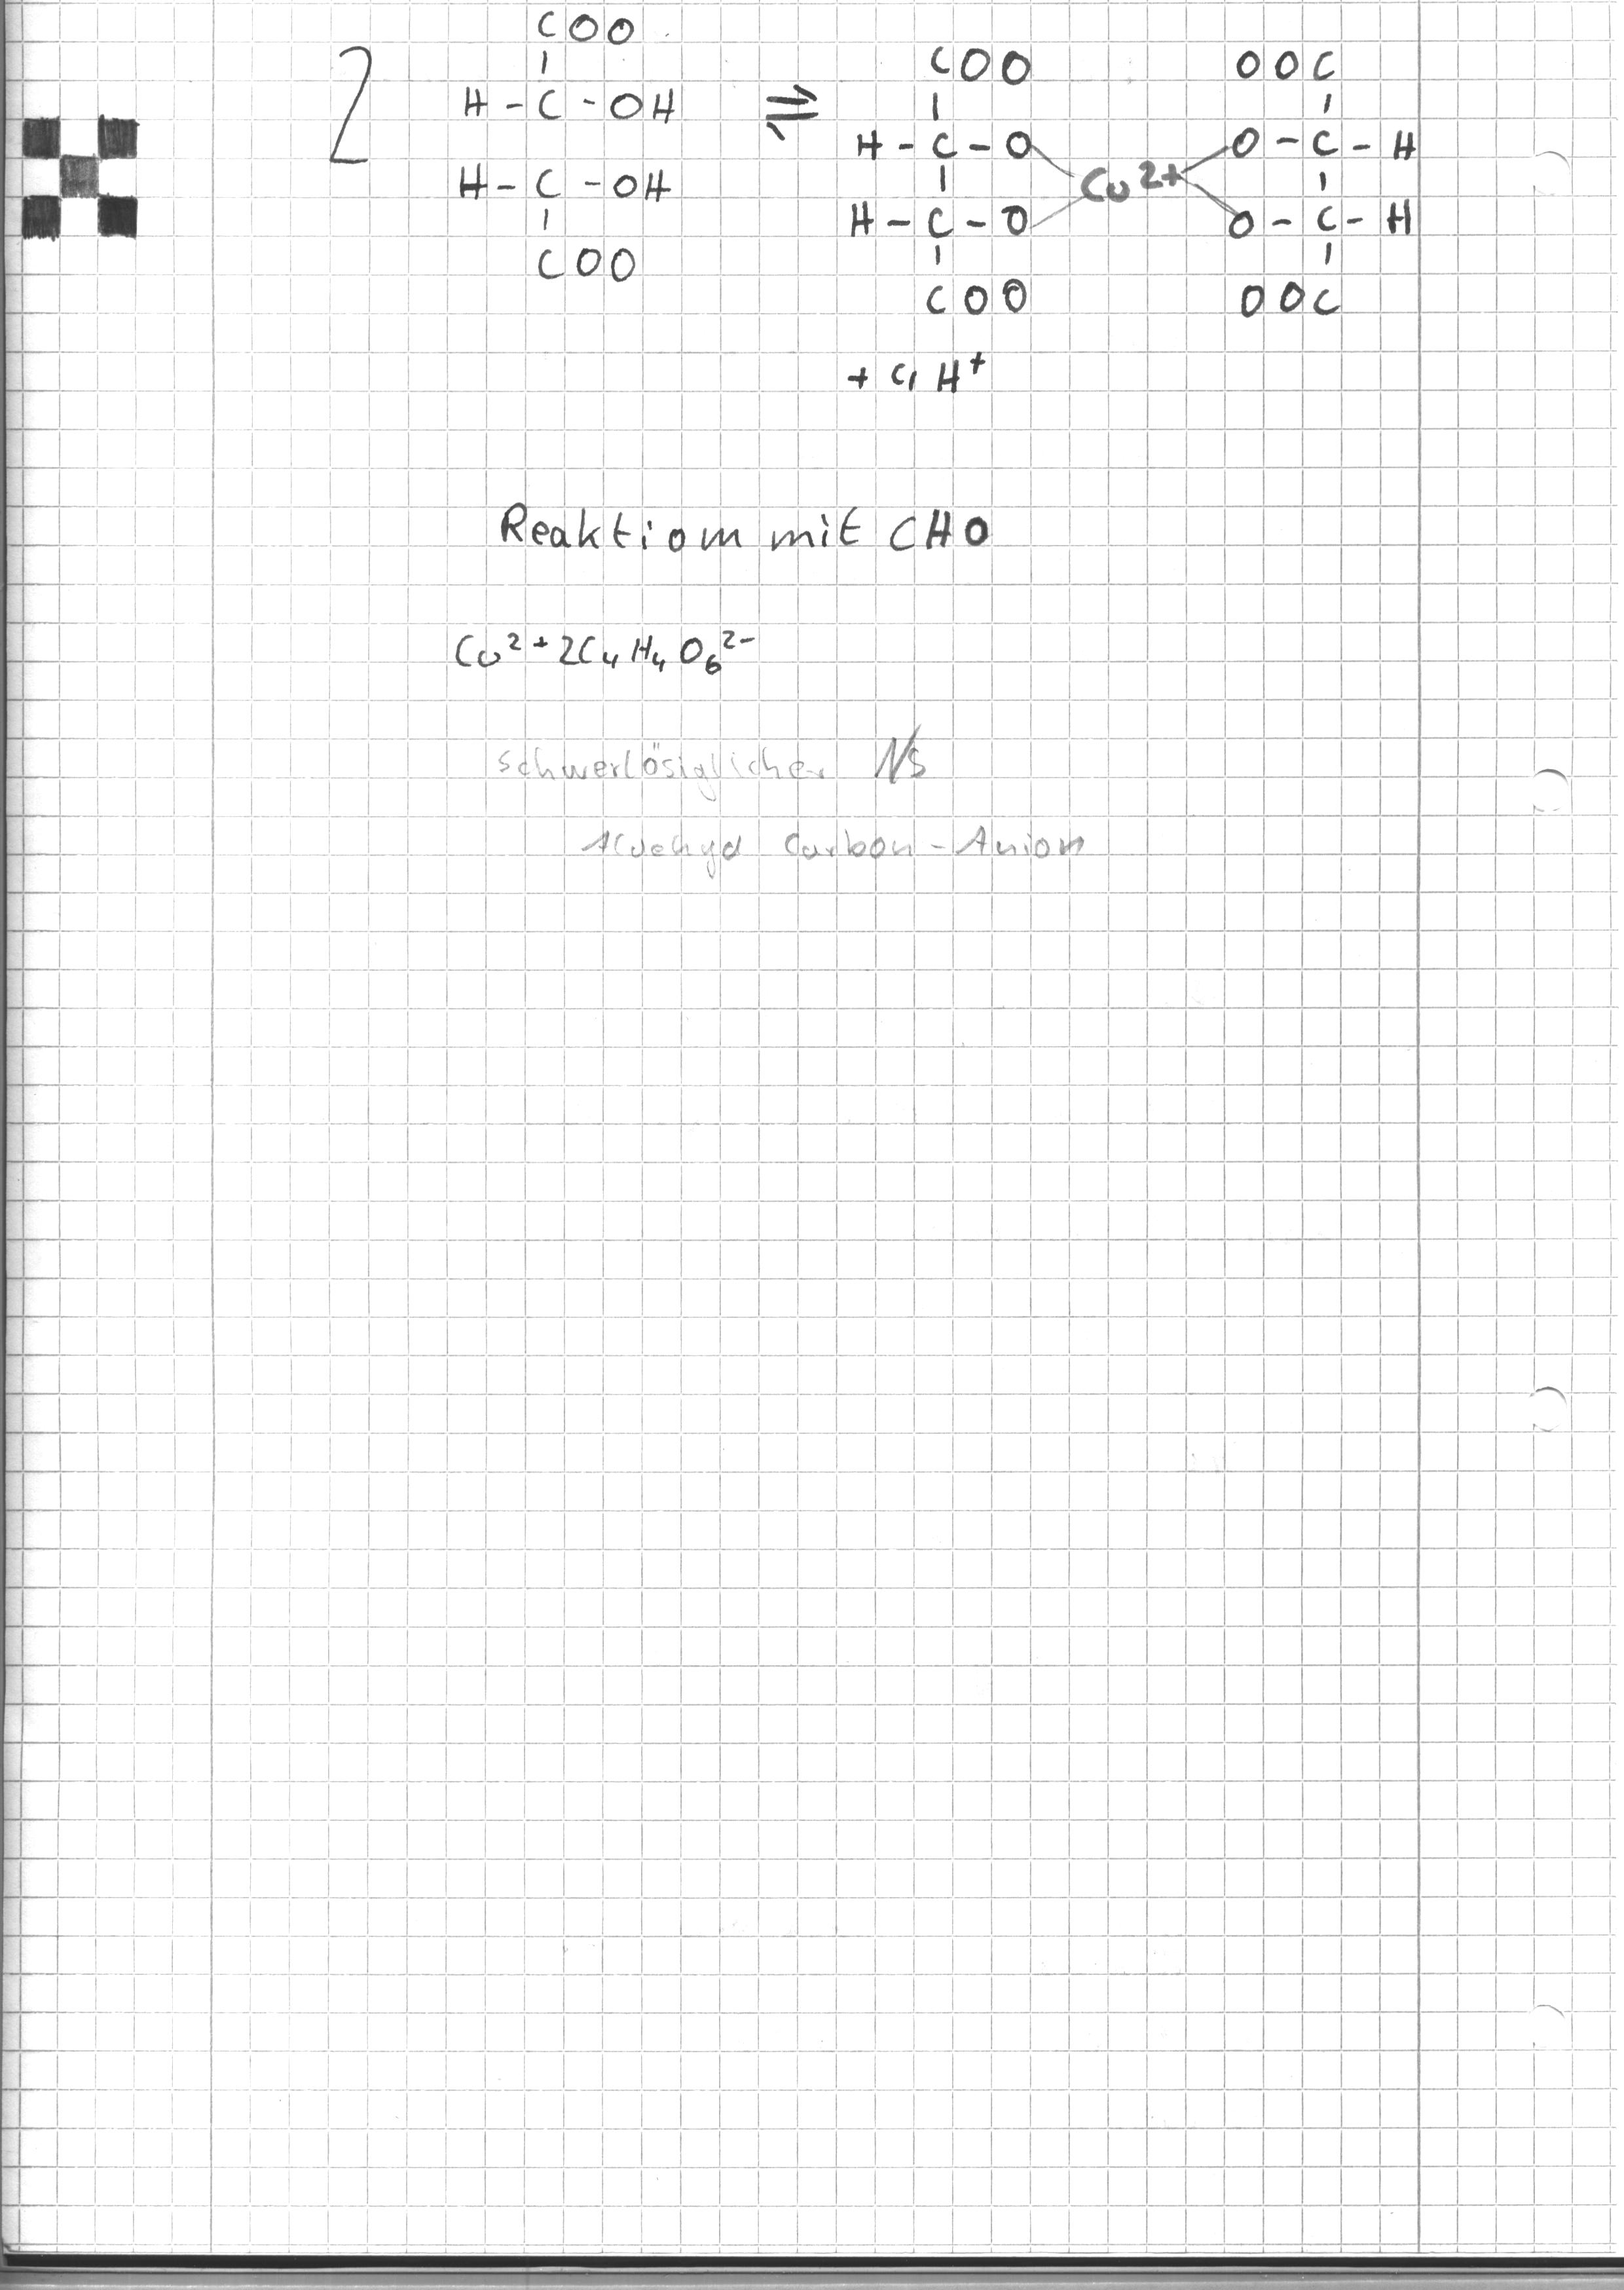 COO
2 H - C - OH ⇌
H - C - OH
COO
COO OOC
H - C - O Cu2+ O - C - H
H - C - O O - C - H
COO OOC
+ 4 H+
Reaktion mit CHO
Cu2+2C4H4O6 2-
schwerlösiglicher NS
Aldehyd Carbon-Anion